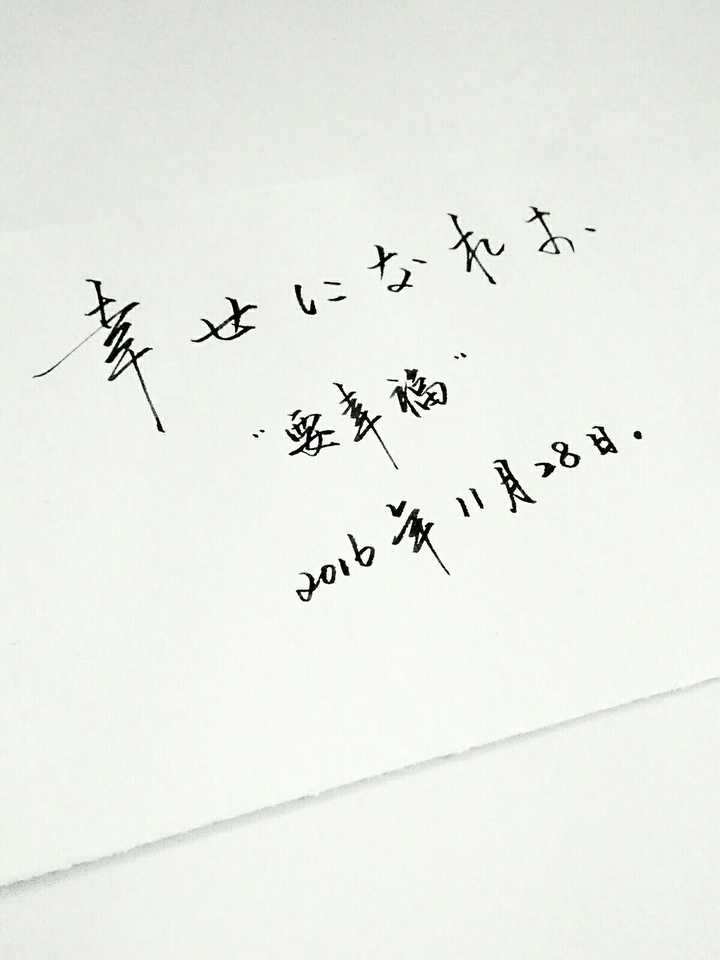 幸せになれお
“要幸福”
2016年11月28日.